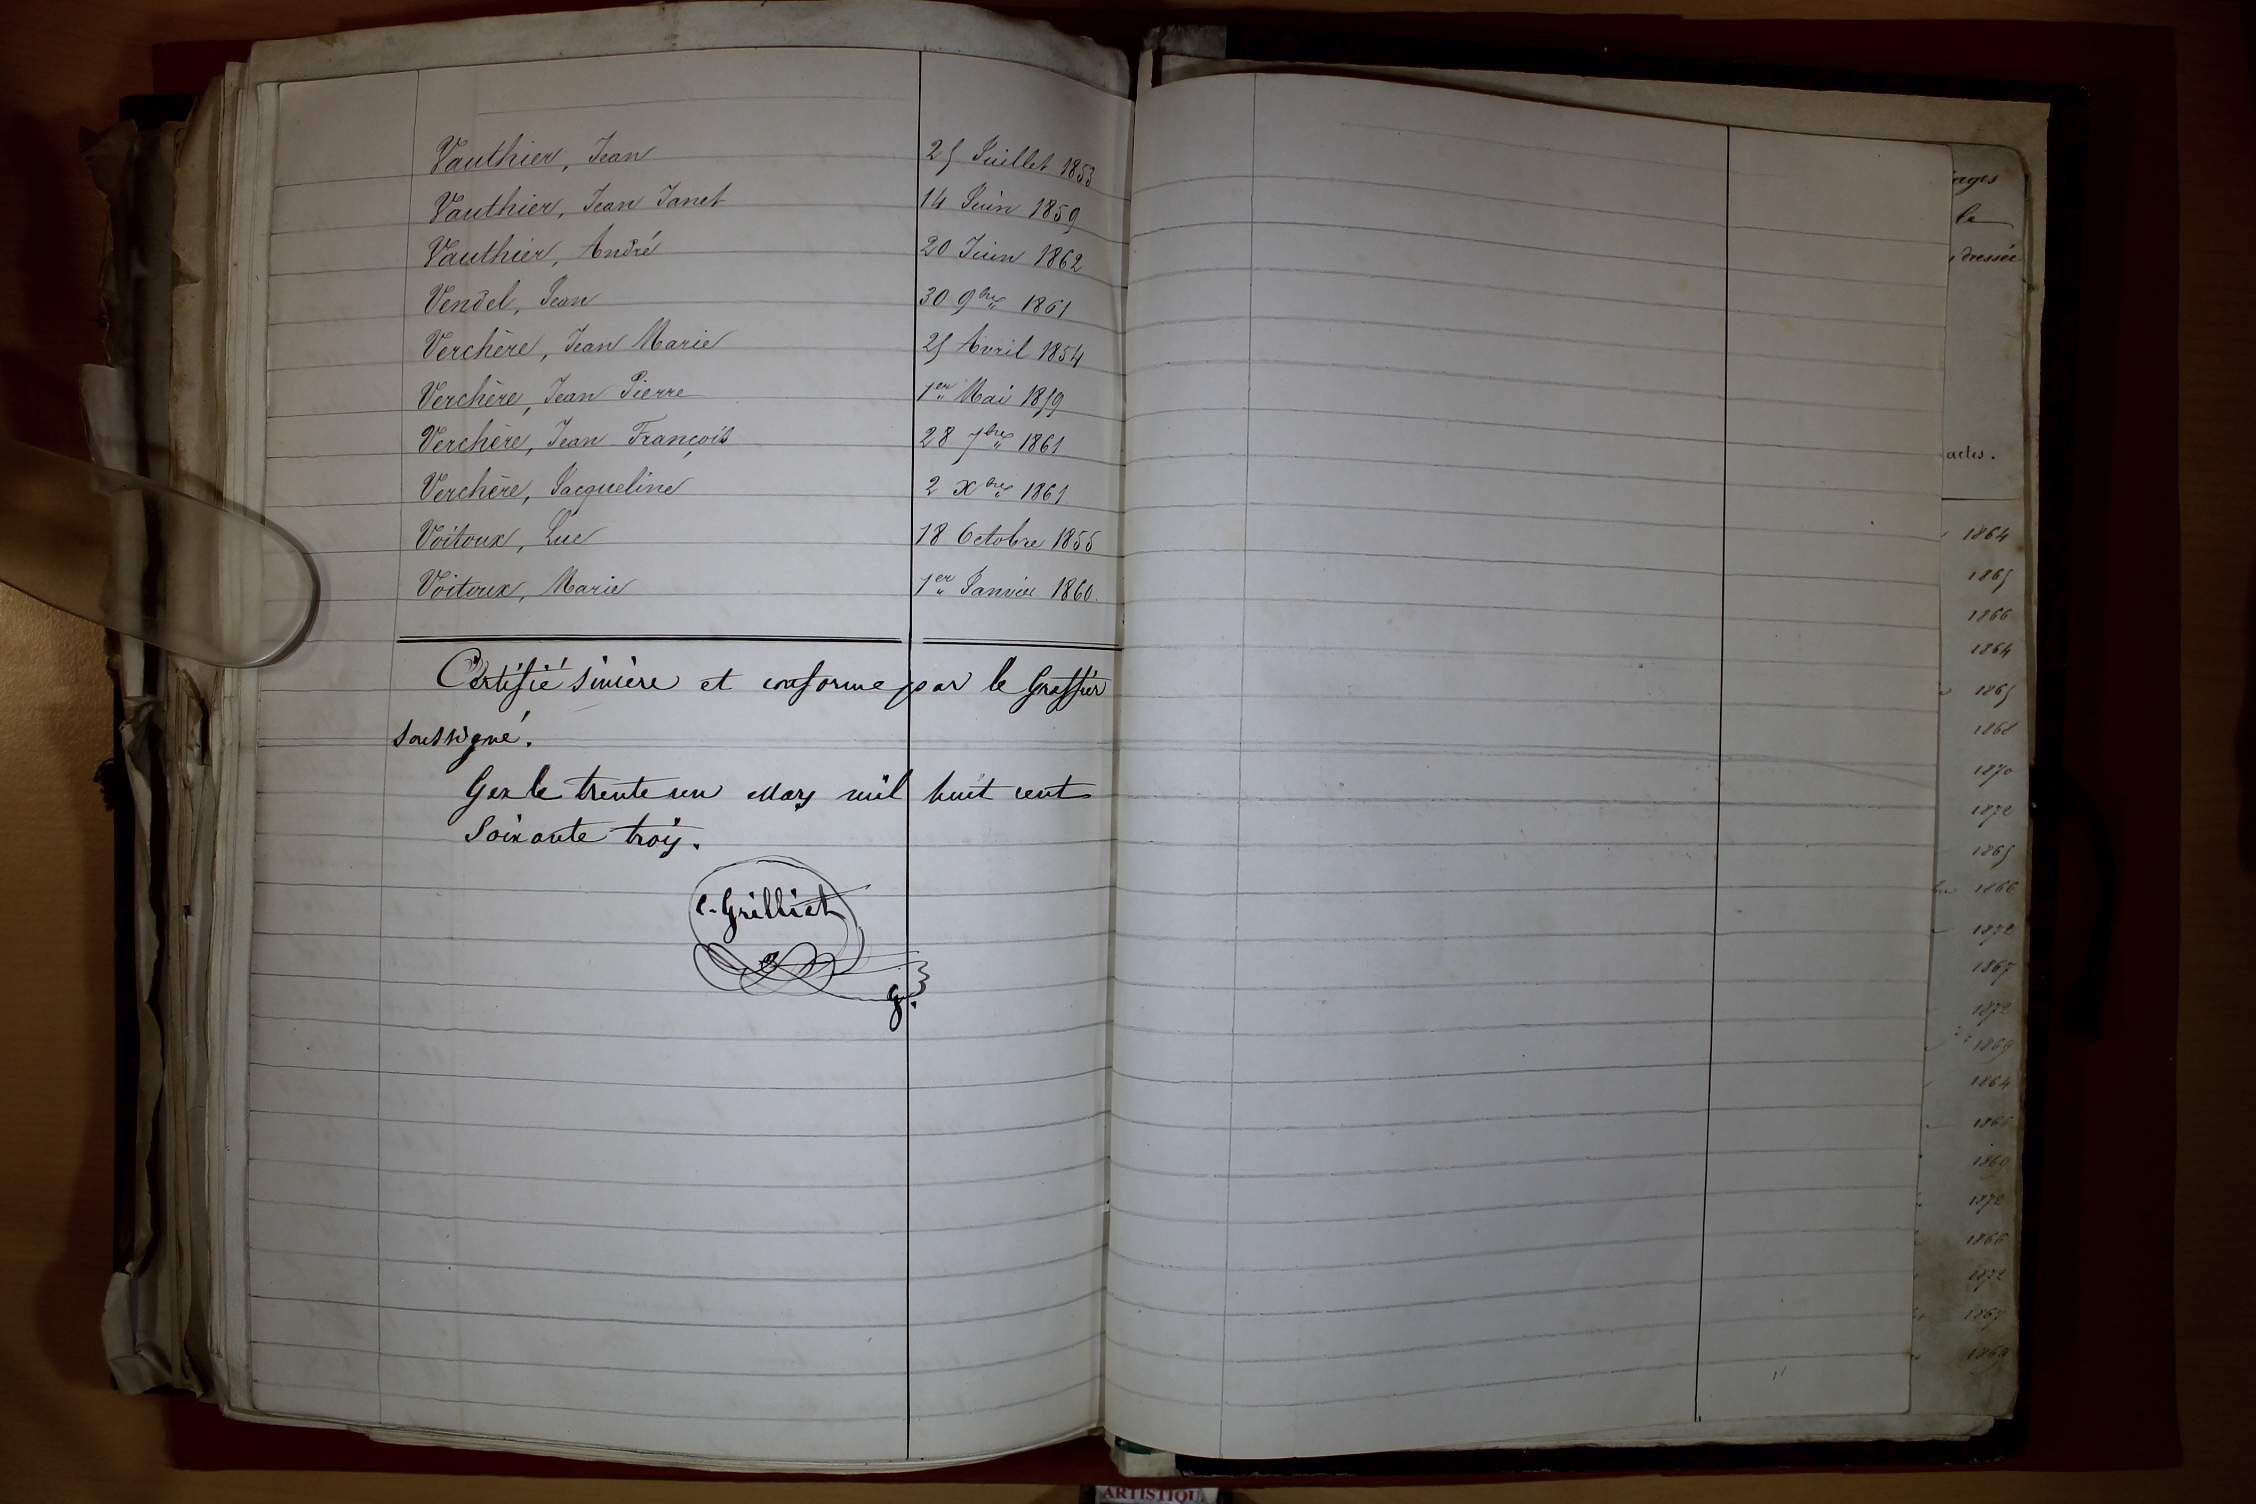 Vauthier, Jean 25 Juillet 1853
Vauthier, Jean Janet 14 Juin 1859
Vauthier, André 20 Juin 1862
Vendel, Jean 30 9bre 1861
Verchère, Jean Marie 25 Avril 1854
Verchère, Jean Pierre 1er Mai 1859
Verchère, Jean François 28 7bre 1861
Verchère, Jacqueline 2 Xbre 1861
Voitoux, Luc 18 Octobre 1855
Voitoux, Marie 1er Janvier 1860.
Certifié sincère et conforme par le Greffier
soussigné.
Gex le trente un Mars mil huit cent
soixante trois.
C. Grilliet
G.
ages
le
dressée
actes.
1864
1865
1866
1864
1865
1868
1870
1872
1865
1866
1872
1867
1872
1869
1864
1866
1869
1872
1866
1872
1867
1869
ARTISTIQU